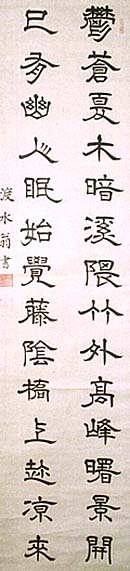 鬱蒼夏木暗溪隈竹外高峰曙景開
已有幽人眠始覺藤陰橋上趁涼來
水翁書